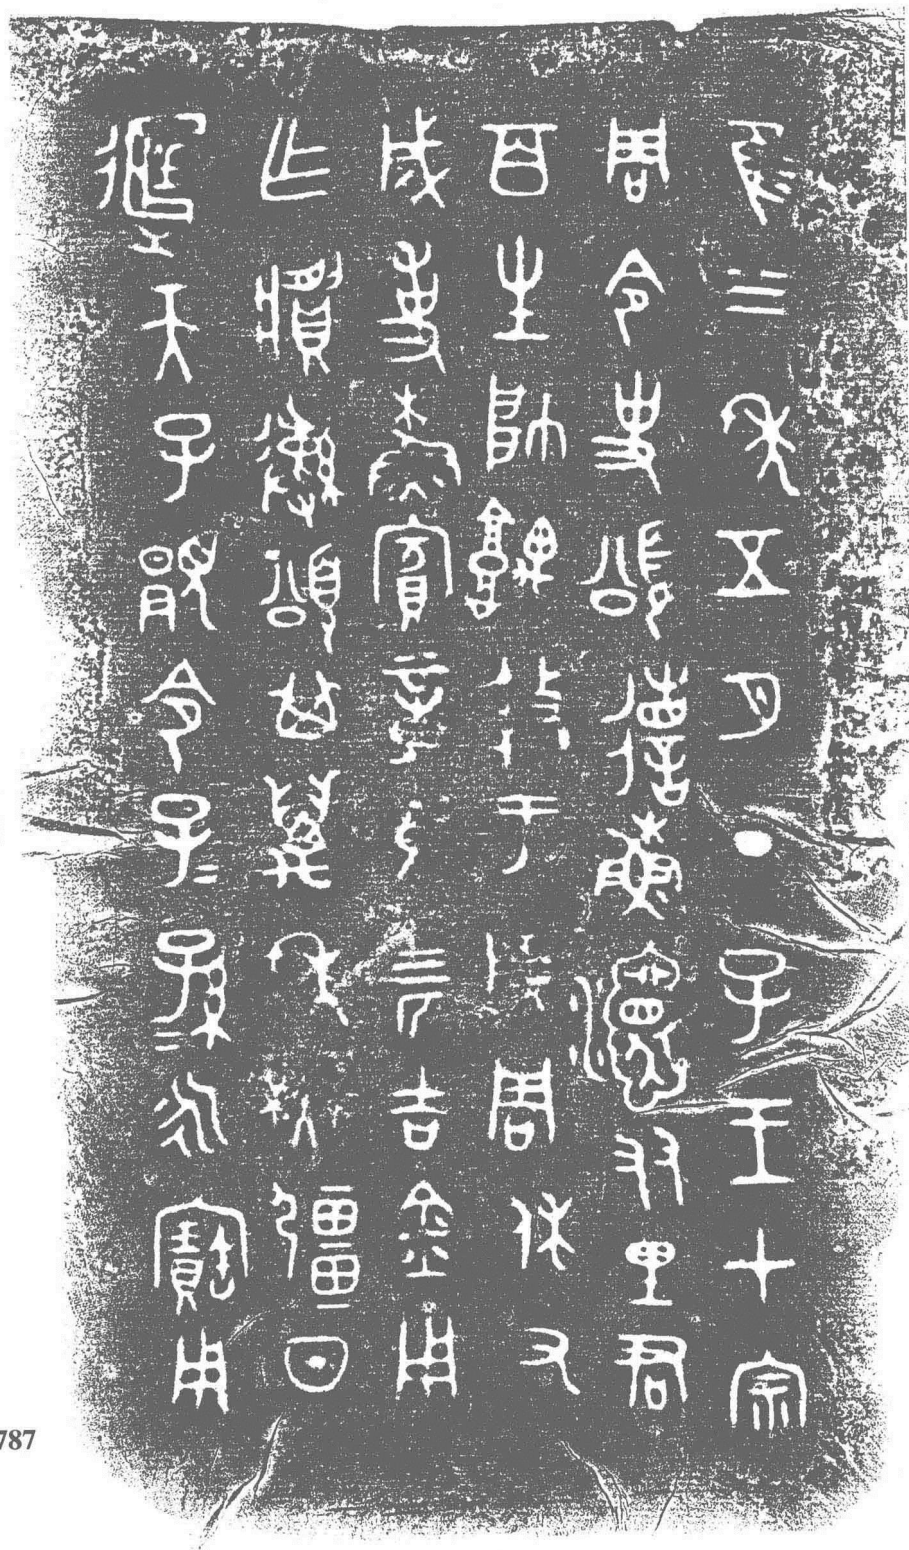 隹三年五月丁子王才宗
周令史頌省穌𤅊友里君
百生帥堣盩于成周休又
成事穌賓章馬四匹吉金用
乍䵼彝頌其萬年無疆日
𨒙天子顯令子=孫=永寶用
787